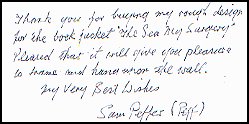 Thank you for buying my rough design
for the book jacket "The Sea My Surgery"
Pleased that it will give you pleasure
to frame and hang upon the wall.
My Very Best Wishes
Sam Peffer (Peff)